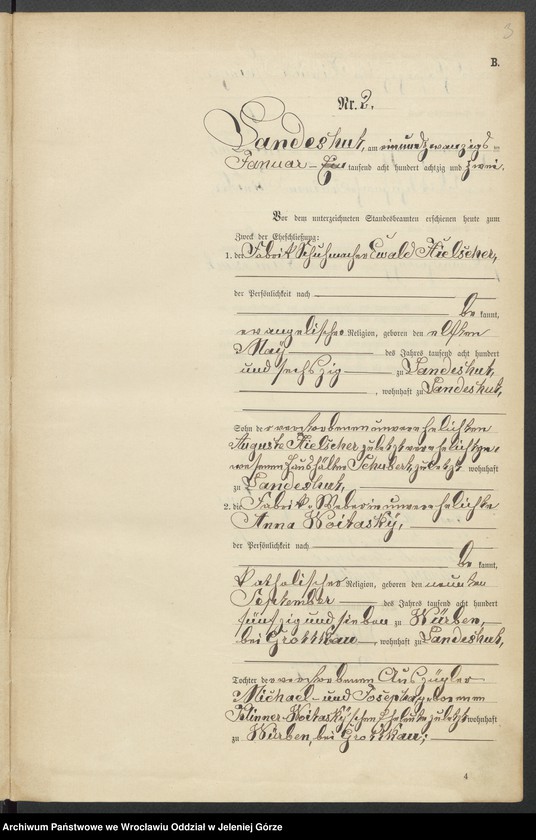 3
B.
Nr. 2.
Landeshut, am einundzwanzigs ten
Januar tausend acht hundert achtzig und zwei.
Vor dem unterzeichneten Standesbeamten erschienen heute zum
Zweck der Eheschließung:
1. der Fabrik Schuhmacher Ewald Hielscher,
der Persönlichkeit nach
be kannt,
evangelischer Religion, geboren den elften
May des Jahres tausend acht hundert
und sechszig zu Landeshut,
, wohnhaft zu Landeshut,
Sohn der verstorbenen unverehelichten
Auguste Hielscher zuletzt verehelichtge-
wesenen Haushälter Schubert, zuletzt wohnhaft
zu Landeshut,
2. die Fabrik-Weberin unverehelichte
Anna Woitasky,
der Persönlichkeit nach
be kannt,
katholischer Religion, geboren den neunten
September des Jahres tausend acht hundert
fünfzig und sieben zu Würben,
bei Grottkau, wohnhaft zu Landeshut,
Tochter der verstorbenen Auszügler
Michael und Josepha geborenen
Klinner-Woitasky'schen Eheleute zuletzt wohnhaft
zu Würben, bei Grottkau;
4
Archiwum Państwowe we Wrocławiu Oddział w Jeleniej Górze